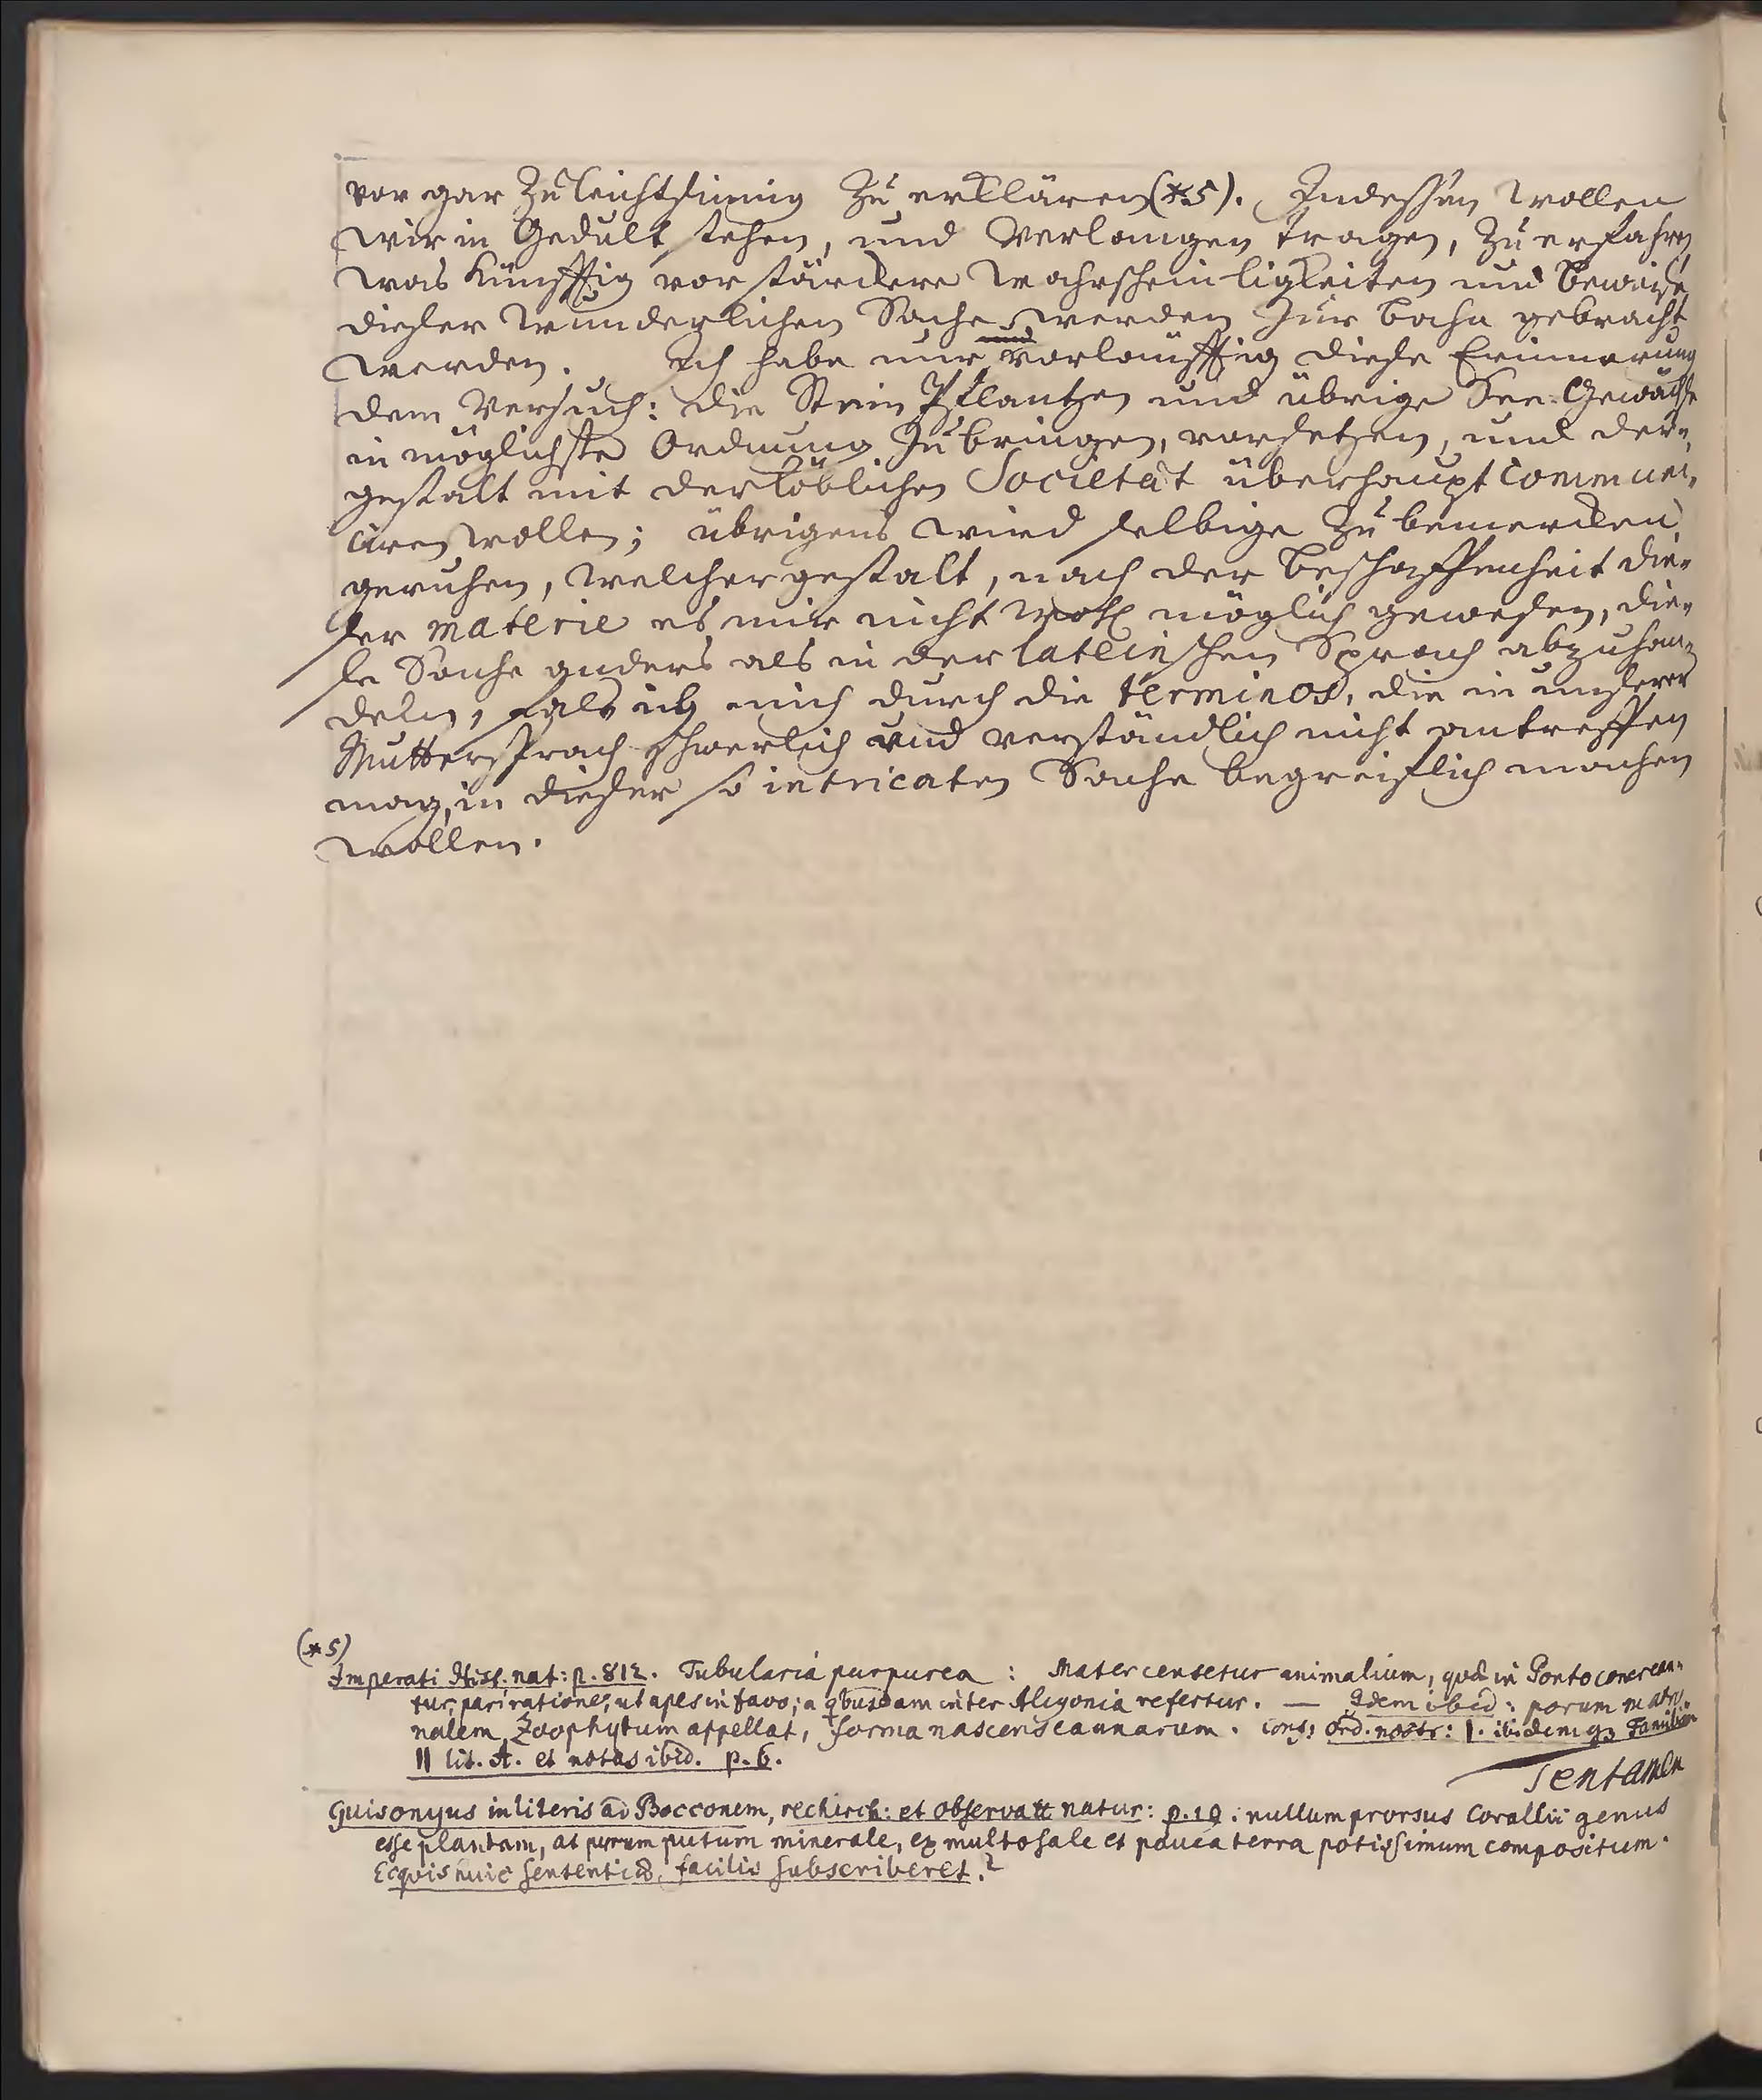 vor gar zu leichtsinnig zu erklären (*5). Indessen wollen
wir in Gedult stehen, und Verlangen tragen, zu erfahren
was künfftig vor stärckere Wahrscheinligkeiten und Beweise
dießer wunderlichen Sache werden zur Bahn gebracht
werden. Ich habe nur vorläuffig diese Erinnerung
dem Versuch: die Stein Pflantzen und übrige See-Gewächse
in möglichste Ordnung zu bringen, vorsetzen, und der-
gestalt mit der löblichen Societät überhaupt commun-
ciren wollen; übrigens wird selbige zu bemercken
geruhen, welcher gestalt, nach der Beschaffenheit die-
ser materie es mir nicht wohl möglich gewesen, die-
se Sache anders als in der lateinschen Sprach abzuhan-
deln, falls ich mich durch die terminos, die in unserer
Muttersprach schwerlich und verständlich nicht antreffen
mag, in dießer so intricaten Sache begreiflich machen
wollen.
(*5)
Imperati Hist. nat: p. 812. Tubularia purpurea: Mater censetur animalium, quae in Ponto concrean-
tur, pari ratione, ut apes in favo; a qbusdam inter Alcyonia refertur. — Idem ibid: porum matro-
nalem Zoophytum appellat, forma nascens cannarum. cons: Ord. nostr: I. ibidemq3 Familiam
II lit. A. et notas ibid. p. 6.
Tentamen
Guisonyus in literis ad Bocconem, recherch: et observatt natur: p. 19. nullum prorsus Corallii genus
esse plantam, at purum putum minerale, ex multo sale et pauca terra potissimum compositum.
Ecquis huic sententiae facilis subscriberet?